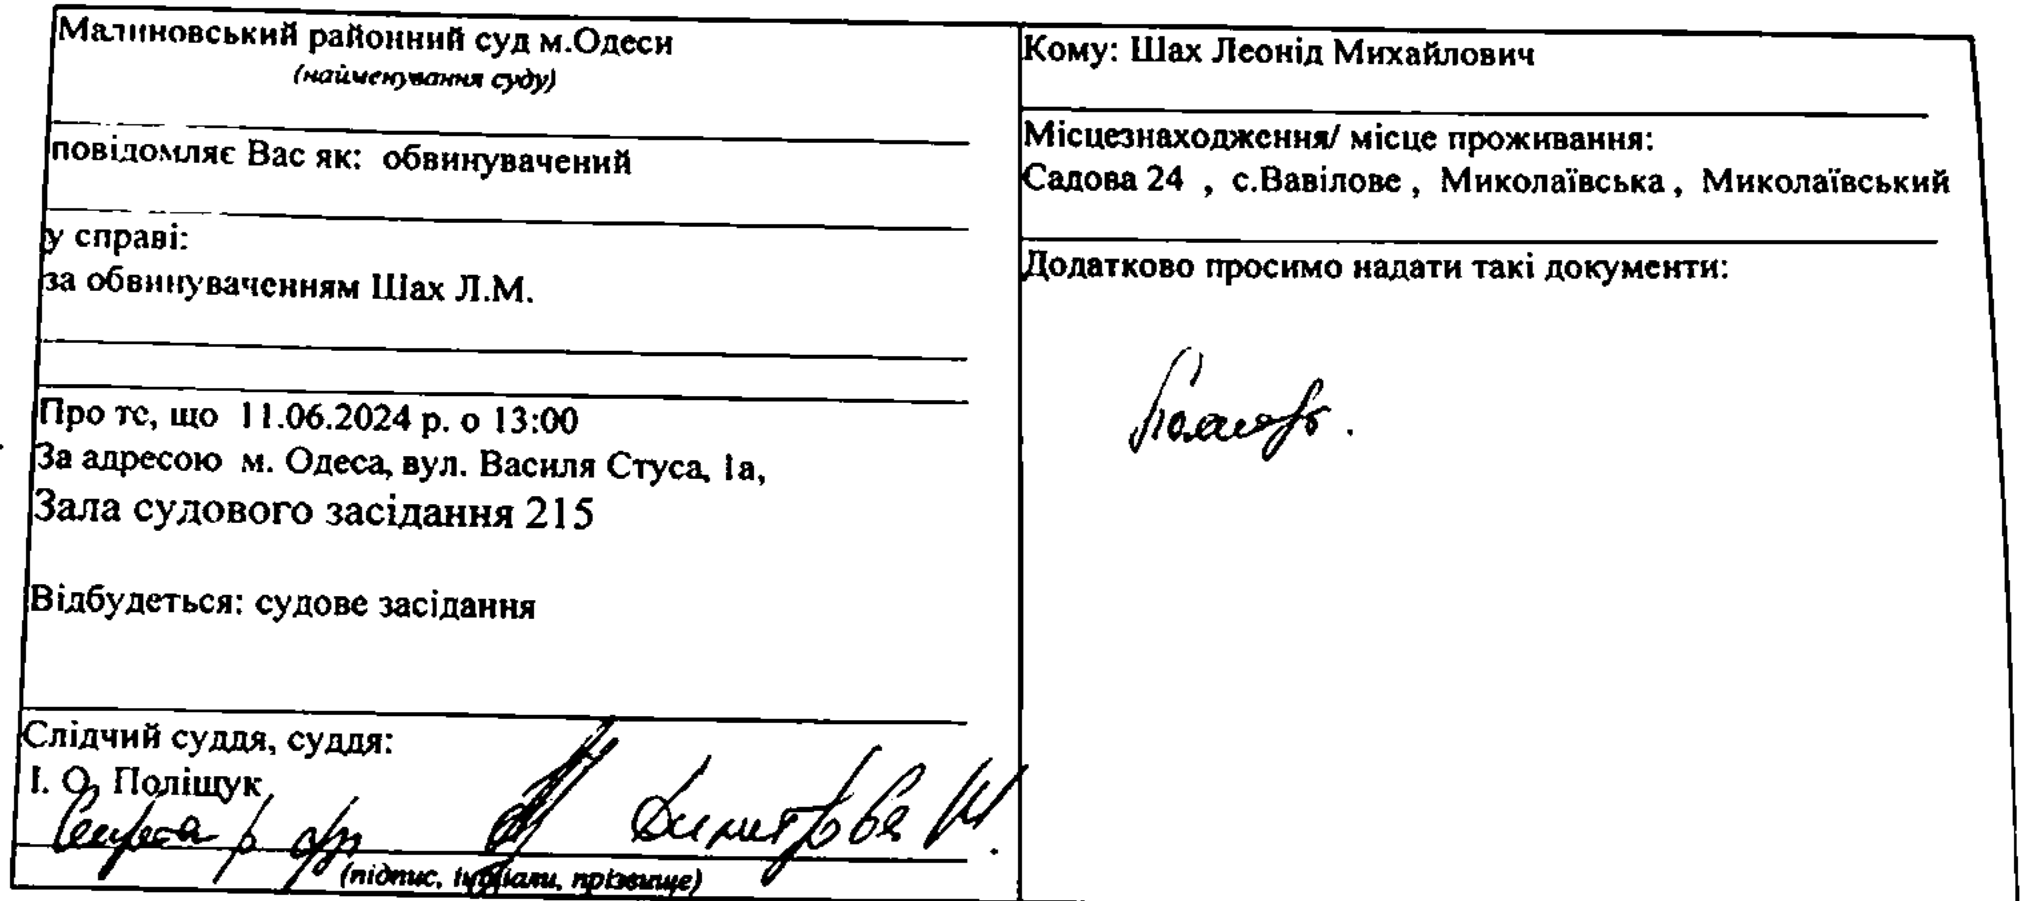 Малиновський районний суд м.Одеси
(найменування суду)
повідомляє Вас як: обвинувачений
у справі:
за обвинуваченням Шах Л.М.
Про те, що 11.06.2024 р. о 13:00
За адресою м. Одеса, вул. Василя Стуса, 1а,
Зала судового засідання 215
Відбудеться: судове засідання
Слідчий суддя, суддя:
І. О. Поліщук
(підпис, ініціали, прізвище)
Кому: Шах Леонід Михайлович
Місцезнаходження/ місце проживання:
Садова 24 , с.Вавілове , Миколаївська , Миколаївський
Додатково просимо надати такі документи: